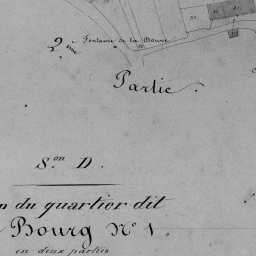 2me Fontaine de la Bouve
Partie.
Son D.
n du quartier dit
Bourg No 1.
en deux parties